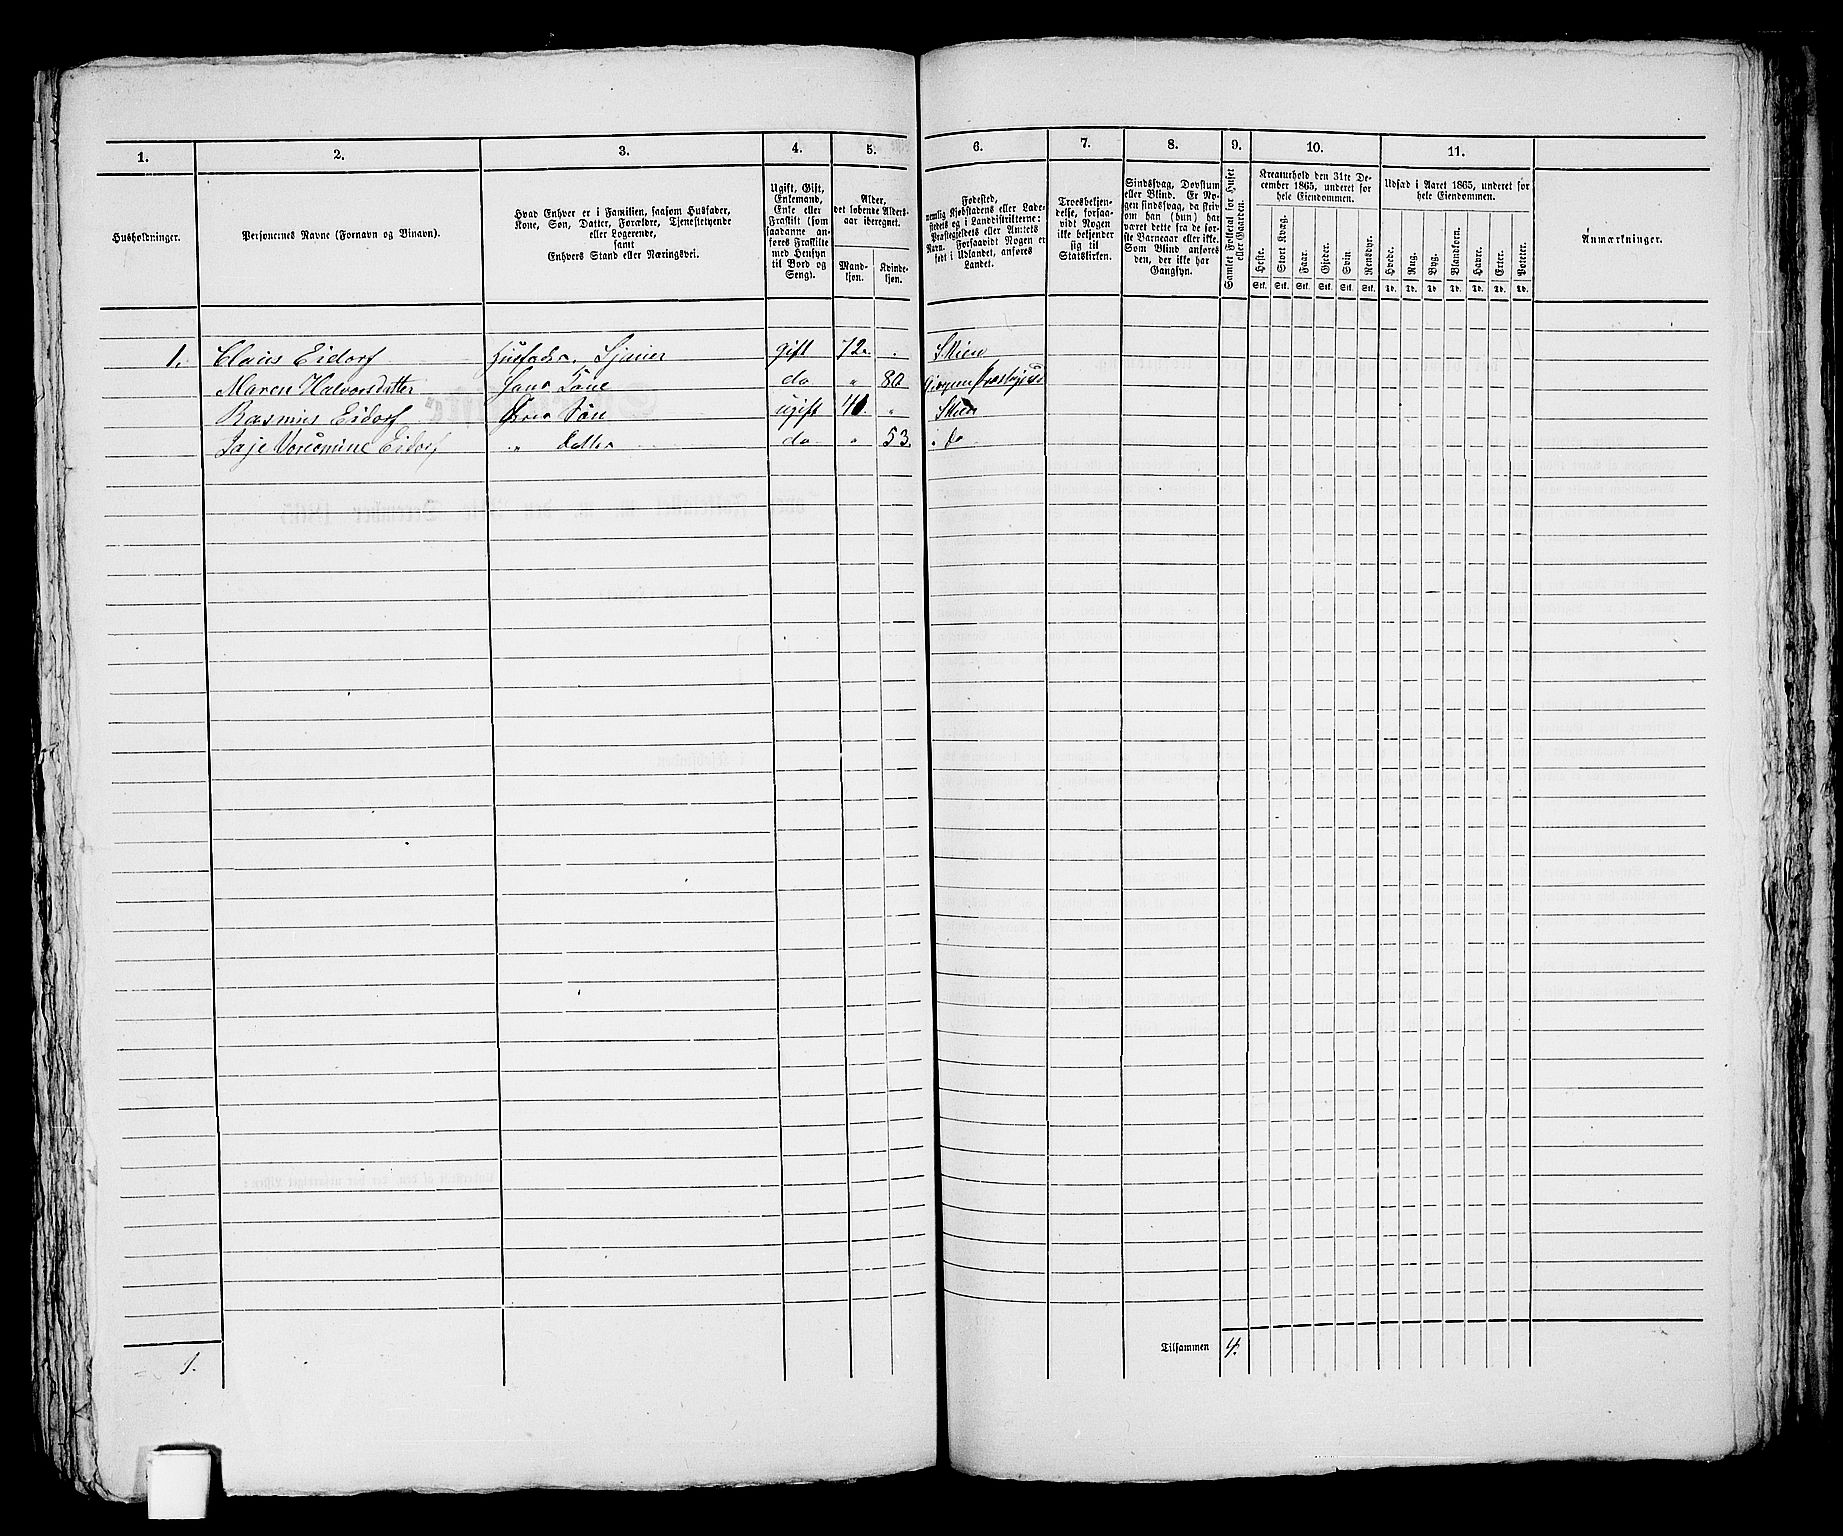 1. 2. 3. 4. 5. 6. 7. 8. 9. 10. 11.
Husholdninger.
Personernes Navne (Fornavn og Binavn).
Hvad Enhver er i Familien, saasom Husfader,
Kone, Søn, Datter, Forældre, Tjenestetyende
eller Logerende,
samt
Enhvers Stand eller Næringsvei.
Ugift, Gift,
Enkemand,
Enke eller
Fraskilt (som
saadanne an-
føres Fraskilte
med Hensyn
til Bord og
Seng).
Alder,
det løbende Alders-
aar iberegnet.
Mand-
kjøn.
Kvinde-
kjøn.
Fødested,
nemlig Kjøbstadens eller Lade-
stedets og i Landdistrikterne:
Præstegjeldets eller Amtets
Navn. Forsaavidt Nogen er
født i Udlandet, anføres
Landet.
Troesbekjen-
delse, forsaa-
vidt Nogen
ikke bekjender
sig til
Statskirken.
Sindssvag, Døvstum
eller Blind. Er No-
gen sindssvag, da skriv
om han (hun) har
været dette fra de før-
ste Barneaar eller ikke.
Som Blind anføres
den, der ikke har
Gangsyn.
Samlet Folketal for Huset
eller Gaarden.
Kreaturhold den 31te De-
cember 1865, underet for
hele Eiendommen.
Heste. Stort Kvæg. Faar. Gjeder. Svin Rensdyr.
Stk. Stk. Stk. Stk. Stk. Stk.
Udsæd i Aaret 1865, underet for
hele Eiendommen.
Hvede. Rug. Byg. Blandkorn. Havre. Erter. Poteter.
Td. Td. Td Td. Td. Td. Td.
Anmærkninger.
1. Claus Eidorf Husfader, gift 72 " Skien
Maren Halvorsdatter Hans Kone do " 80
Rasmus Eidorf Søn ugift " Skien
Eidorf " Datter do " 53 " do
1. Tilsammen 4.